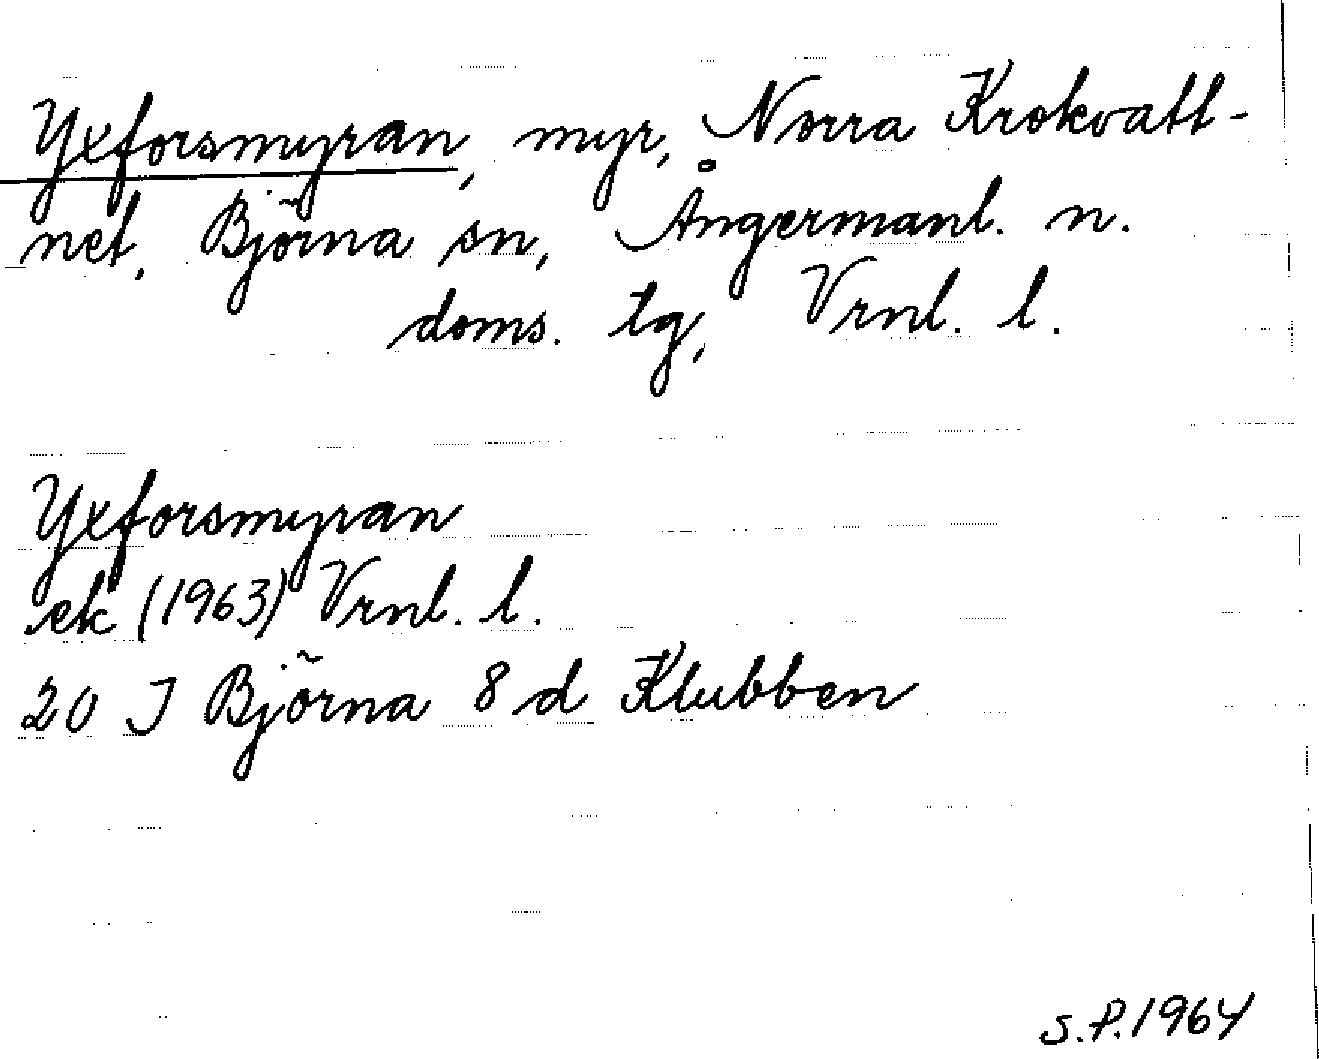 Yxforsmyran, myr, Norra Krokvatt-
net, Björna sn, Ångermanl. n.
doms. tg, Vrnl. l.
Yxforsmyran
ek (1963) Vrnl. l.
20 J Björna 8 d Klubben
S.P. 1964